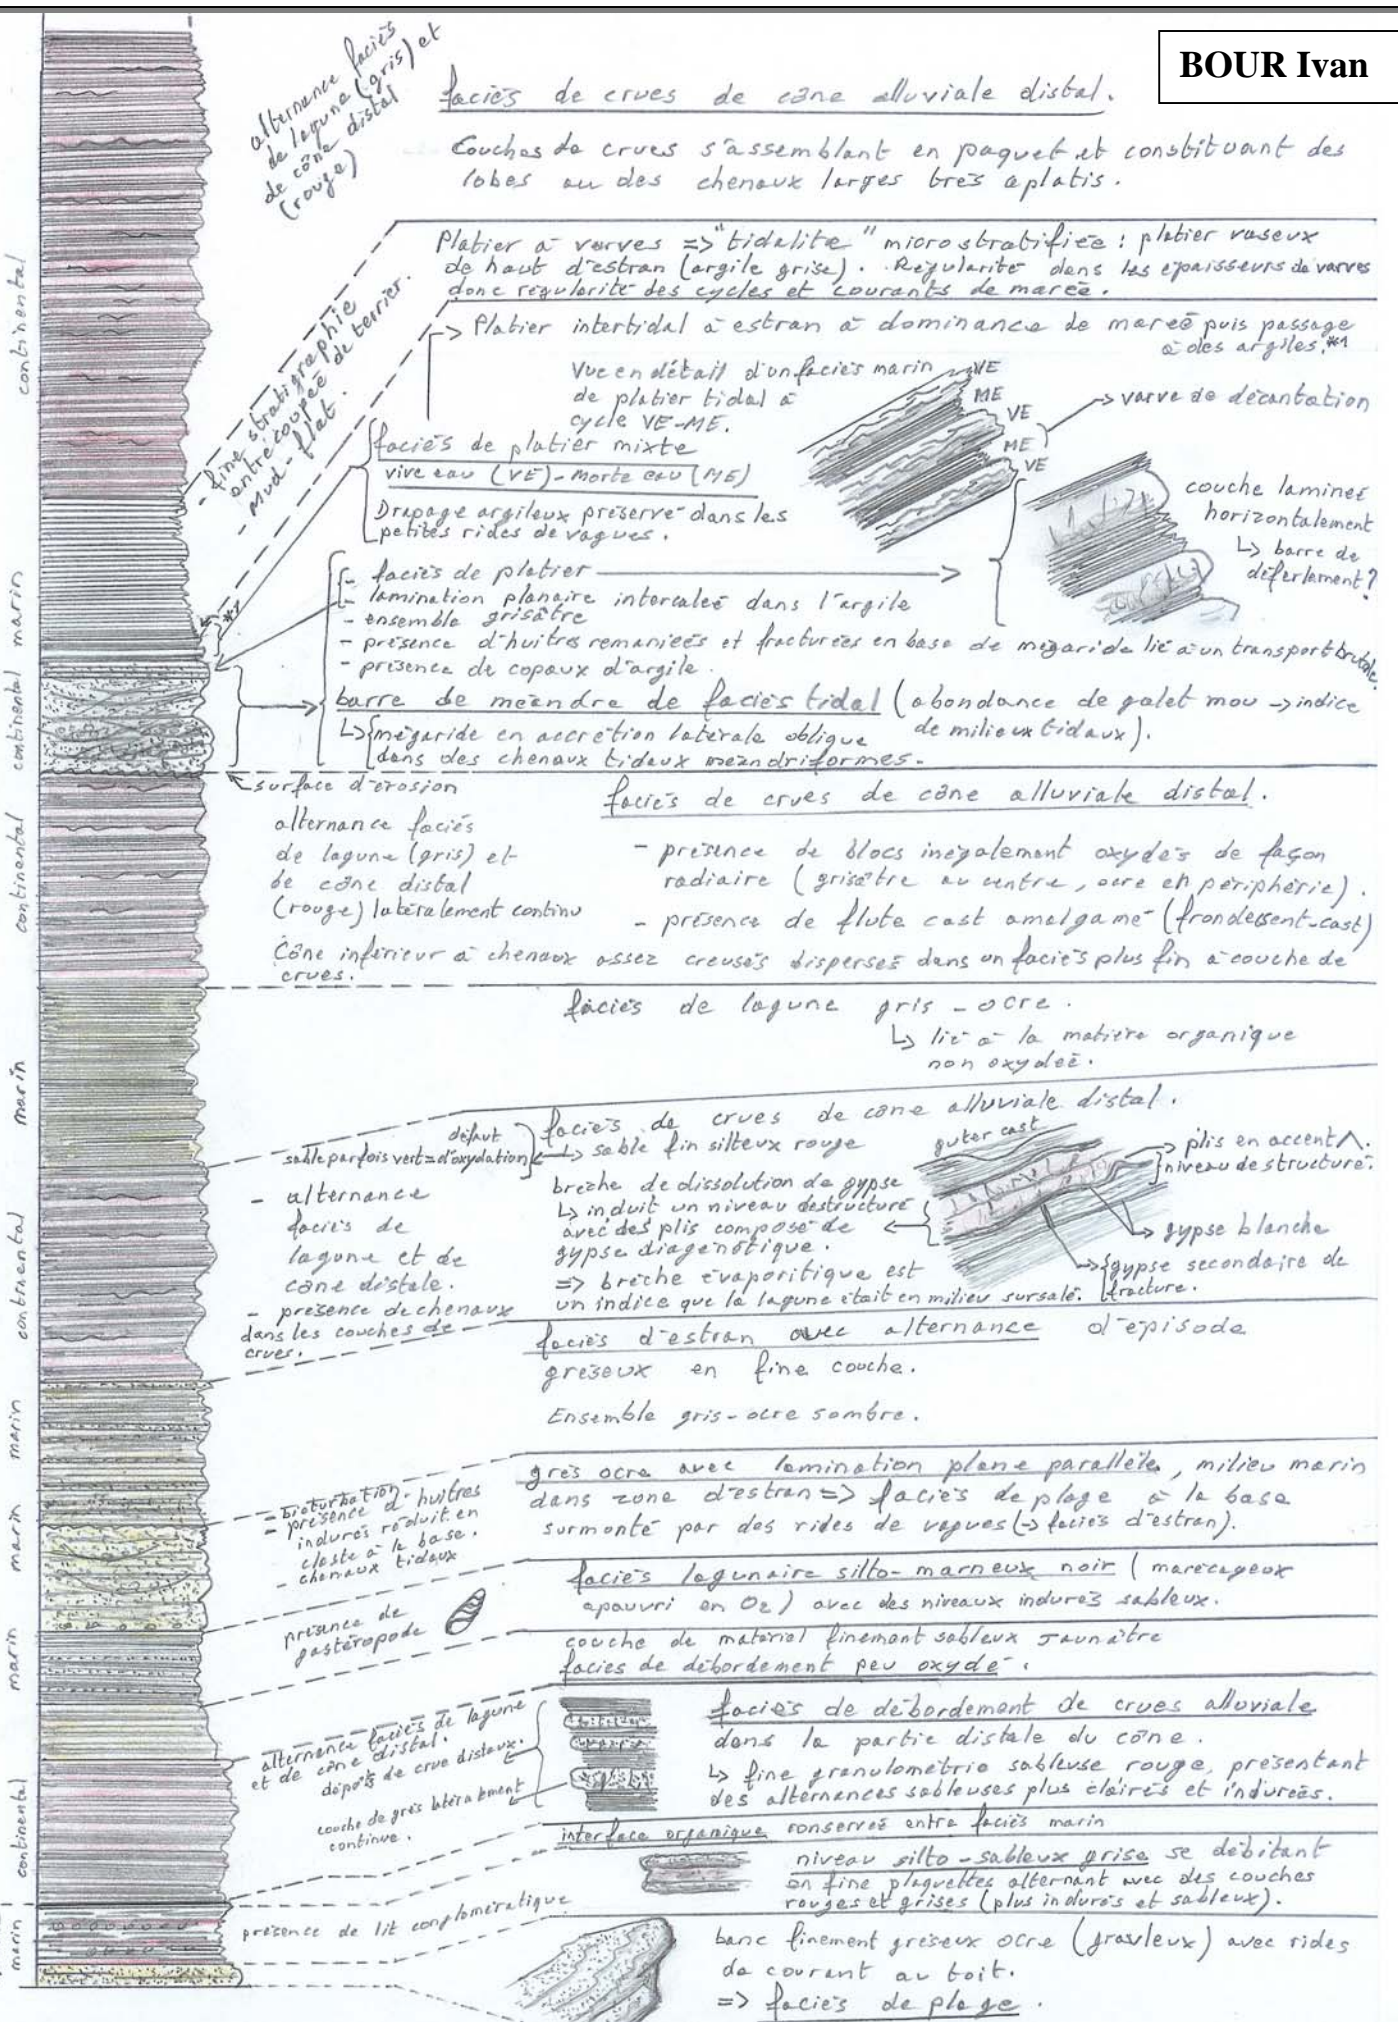 BOUR Ivan
alternance faciès
de lagune (gris) et
de cône distal
(rouge)
faciès de crues de cône alluviale distal.
Couches de crues s'assemblant en paquet et constituant des
lobes ou des chenaux larges très aplatis.
Platier à varves => "tidalite" microstratifiée : platier vaseux
de haut d'estran (argile grise). Régularité dans les épaisseurs de varves
donc régularité des cycles et courants de marée.
- fine stratigraphie
entrecoupée de terrier.
- Mud-flat.
-> Platier intertidal à estran à dominance de mareé puis passage
à des argiles.*1
Vue en détail d'un faciès marin
de platier tidal à
cycle VE-ME.
VE
ME
VE
ME
VE
-> varve de décantation
faciès de platier mixte
vive eau (VE) - morte eau (ME)
Drapage argileux préservé dans les
petites rides de vagues.
couche lamineé
horizontalement
↳ barre de
déferlement?
- faciès de platier
- lamination planaire intercaleé dans l'argile
- ensemble grisâtre
- présence d'huîtres remaniées et fracturées en base de mégaride lié à un transport brutale.
- présence de copaux d'argile.
*1
barre de méandre de faciès tidal (abondance de galet mou -> indice
de milieux tidaux).
↳ {mégaride en accrétion latérale oblique
dans des chenaux tidaux méandriformes.
surface d'érosion
faciès de crues de cône alluviale distal.
alternance faciès
de lagune (gris) et
de cône distal
(rouge) latéralement continu
- présence de blocs inégalement oxydés de façon
radiaire (grisâtre au centre, ocre en périphérie).
- présence de flute cast amalgamé (frondescent-cast)
Cône inférieur à chenaux assez creusés dispersés dans un faciès plus fin à couche de
crues.
faciès de lagune gris-ocre.
↳ lié à la matière organique
non oxydeé.
faciès de crues de cône alluviale distal.
↳ sable fin silteux rouge
défaut
sable parfois vert = d'oxydation
guter cast
-> plis en accent Λ.
}niveau destructuré.
brèche de dissolution de gypse
↳ induit un niveau destructuré
avec des plis composé de
gypse diagénétique.
=> brèche évaporitique est
un indice que la lagune était en milieu sursalé.
-> gypse blanche
-> {gypse secondaire de
fracture.
- alternance
faciès de
lagune et de
cône distale.
- présence de chenaux
dans les couches de
crues.
faciès d'estran avec alternance d'épisode
gréseux en fine couche.
Ensemble gris-ocre sombre.
grès ocre avec lamination plane parallèle, milieu marin
dans zone d'estran => faciès de plage à la base
surmonté par des rides de vagues (-> faciès d'estran).
- bioturbation.
- présence d'huîtres
indurés réduit en
claste à la base.
- chenaux tidaux
faciès lagunaire silto-marneux noir (marécageux
apauvri en O2) avec des niveaux indurés sableux.
présence de
gastéropode
couche de matériel finement sableux jaunâtre
facies de débordement peu oxydé.
alternance faciès de lagune
et de cône distal.
dépôts de crue distaux.
couche de grès latéralement
continue.
faciès de débordement de crues alluviale
dans la partie distale du cône.
↳ fine granulométrie sableuse rouge, présentant
des alternances sableuses plus claires et indurées.
interface organique conserveé entre faciès marin
niveau silto-sableux grise se débitant
en fine plaquettes alternant avec des couches
rouges et grises (plus indurés et sableux).
présence de lit conglomératique
banc finement gréseux ocre (graveleux) avec rides
de courant au toit.
=> faciès de plage.
continental
marin
continental
continental
marin
continental
marin
marin
marin
continental
marin